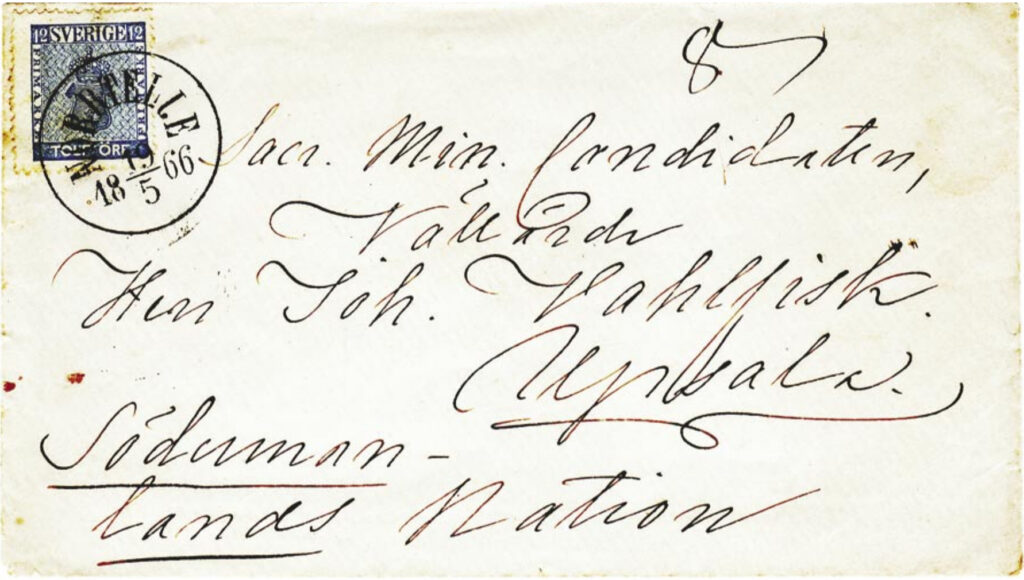 12 SVERIGE 12
FRIMÄRKE
TOLF ÖRE
NORRTELJE
18 5 66
8
Sacr. Min. Candidaten,
Vällärde
Herr Joh. Wahlfisk.
Upsala.
Söderman-
lands Nation